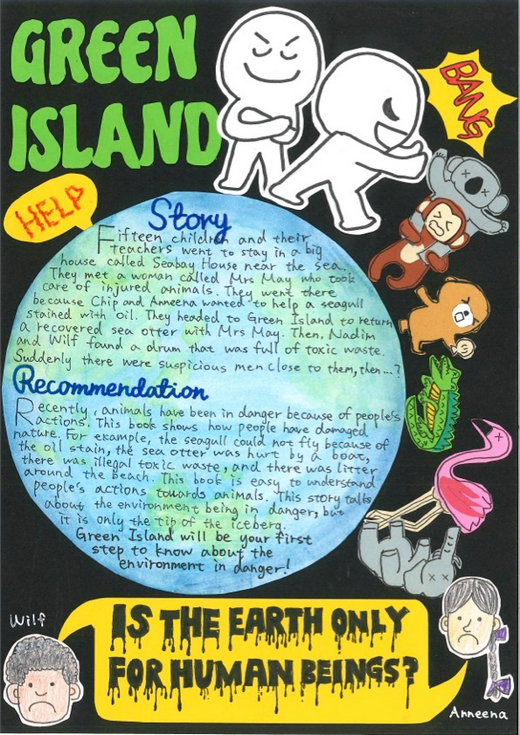 GREEN
ISLAND
BANG
HELP
Story
Fifteen children and their
teachers went to stay in a big
house called Seabay House near the sea.
They met a woman called Mrs May who took
care of injured animals. They were there
because Chip and Anneena wanted to help a seagull
stained with oil. They headed to Green Island to return
a recovered sea otter with Mrs May. Then, Nadim
and Wilf found a drum that was full of toxic waste.
Suddenly there were suspicious men close to them, then...?
Recommendation
Recently, animals have been in danger because of people's
actions. This book shows how people have damaged
nature. For example, the seagull could not fly because of
the oil stain, the sea otter was hurt by a boat,
there was illegal toxic waste, and there was litter
around the beach. This book is easy to understand
people's actions towards animals. This story talks
about the environment being in danger, but
it is only the tip of the iceberg.
Green Island will be your first
step to know about the
environment in danger!
Wilf
IS THE EARTH ONLY
FOR HUMAN BEINGS?
Anneena